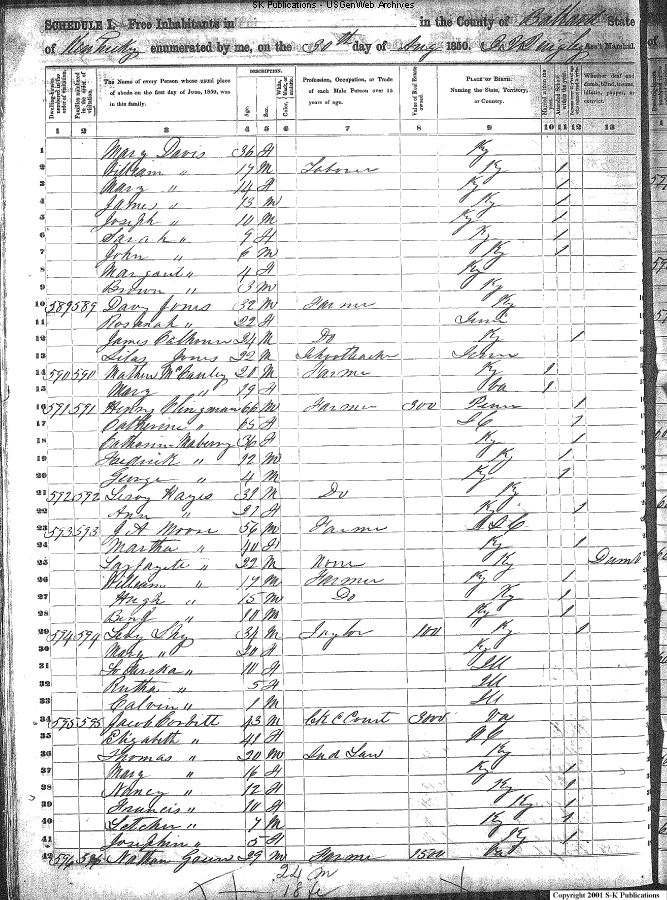 SK Publications - USGenWeb Archives
SCHEDULE I.—Free Inhabitants in in the County of Ballard State
of Kentucky enumerated by me, on the 30th day of Aug 1850. Ass't Marshal.
Dwelling-houses numbered in the order of visitation. Families numbered in the order of visitation. The Name of every Person whose usual place of abode on the first day of June, 1850, was in this family. DESCRIPTION. Age. Sex. Color, Profession, Occupation, or Trade of each Male Person over 15 years of age. Value of Real Estate owned. PLACE OF BIRTH. Naming the State, Territory, or Country. Whether deaf and dumb, blind, insane, idiotic, pauper, or convict.
1 2 3 4 5 6 7 8 9 10 11 12 13
1 Mary Davis 36 F Ky
2 William " 17 M Laborer Ky 1
3 Mary " 14 F Ky 1
4 James " 13 M Ky 1
5 Joseph " 10 M Ky 1
6 Sarah " 9 F Ky 1
7 John " 6 M Ky 1
8 Margaret " 4 F Ky
9 Brown " 3 M Ky
10 589 589 Davy Jones 32 M Farmer Ky
11 Rosanah " 22 F Tenn
12 James Calhoun 24 M Do Ky 1
13 Silas Jones 22 M Schoolteacher Tenn
14 590 590 Mathew McCauley 20 M Farmer Ky 1
15 Mary " 19 F Va 1
16 591 591 Henry Clingman 66 M Farmer 300 Penn 1
17 Catherine " 65 F S C 1
18 Catharine Maberry 36 F Ky 1
19 Fredrick " 12 M Ky 1
20 George " 4 M Ky 1
21 592 592 Leroy Hayes 39 M Do Ky
22 Ann " 27 F Ky 1
23 593 593 J A Moore 56 M Farmer S C
24 Martha " 40 F Ky 1
25 Lafayete " 22 M None Ky Dumb
26 William " 17 M Farmer Ky 1
27 Hugh " 15 M Do Ky 1
28 Benj " 10 M Ky 1
29 594 594 Shy 34 M Taylor 100 Ky 1
30 Mary " 20 F Ky
31 " 10 F Ill
32 Rutha " 5 F Ill
33 Calvin " 1 M Ill
34 595 595 Jacob Corbett 43 M Clk C Court 3000 Va
35 Elizabeth " 41 F N C
36 Thomas " 20 M Ind Law Ky
37 Mary " 16 F Ky 1
38 Nancy " 12 F Ky 1
39 Francis " 10 F Ky 1
40 Letcher " 7 M Ky 1
41 Josephin " 5 F Ky 1
42 596 596 Nathan 29 M Farmer 1500 Va
24 M
18 fe
Copyright 2001 S-K Publications